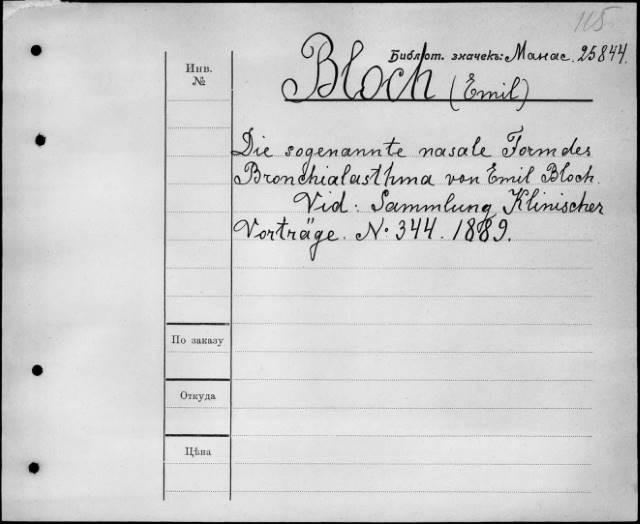 115
Библіот. значекъ: Манас. 25844.
Инв.
№
Bloch (Emil)
Die sogenannte nasale Form des
Bronchialasthma von Emil Bloch.
Vid: Sammlung Klinischer
Vorträge. No 344. 1889.
По заказу
Откуда
Цѣна